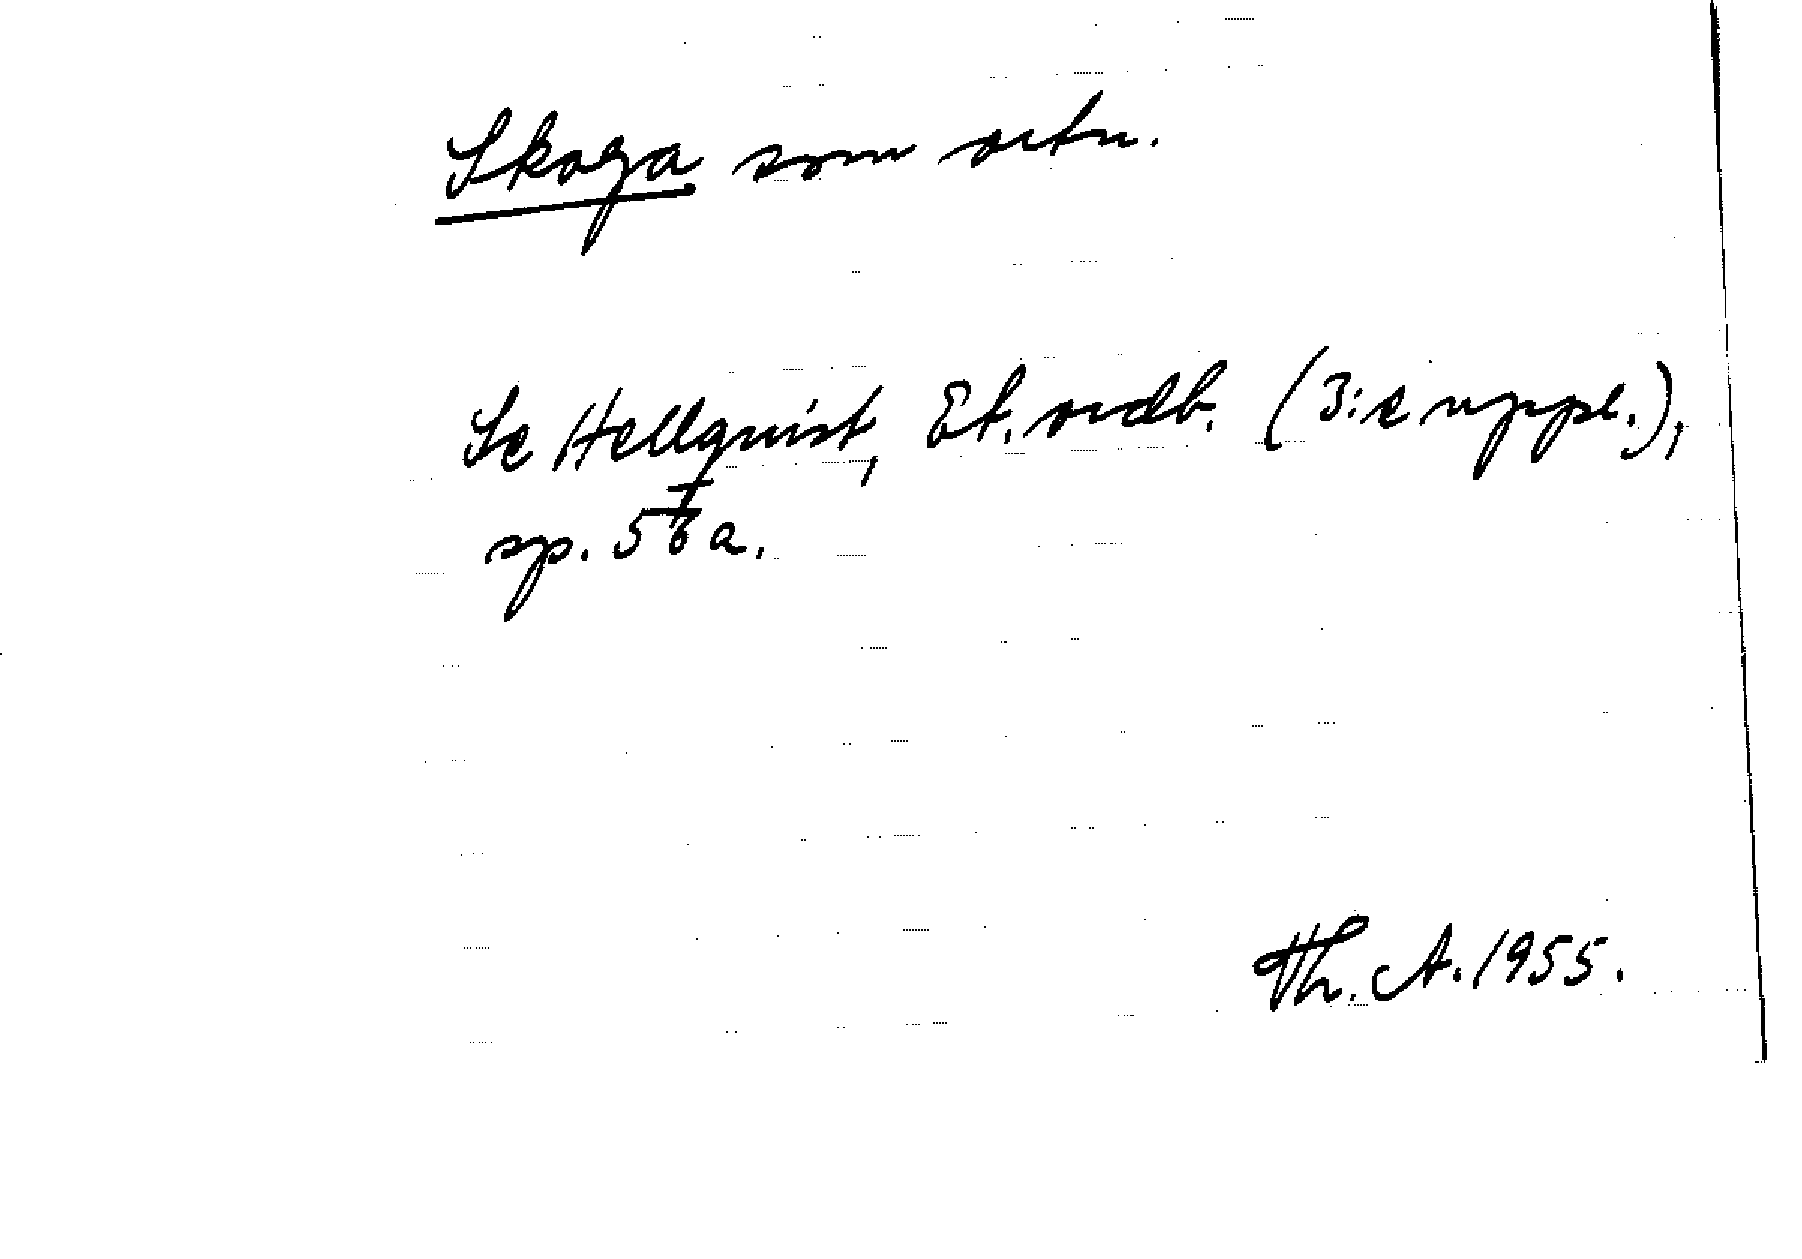 Skoga som ortn.
Se Hellquist, Et. ordb. (3:e uppl.),
sp. a.
Th. A. 1955.